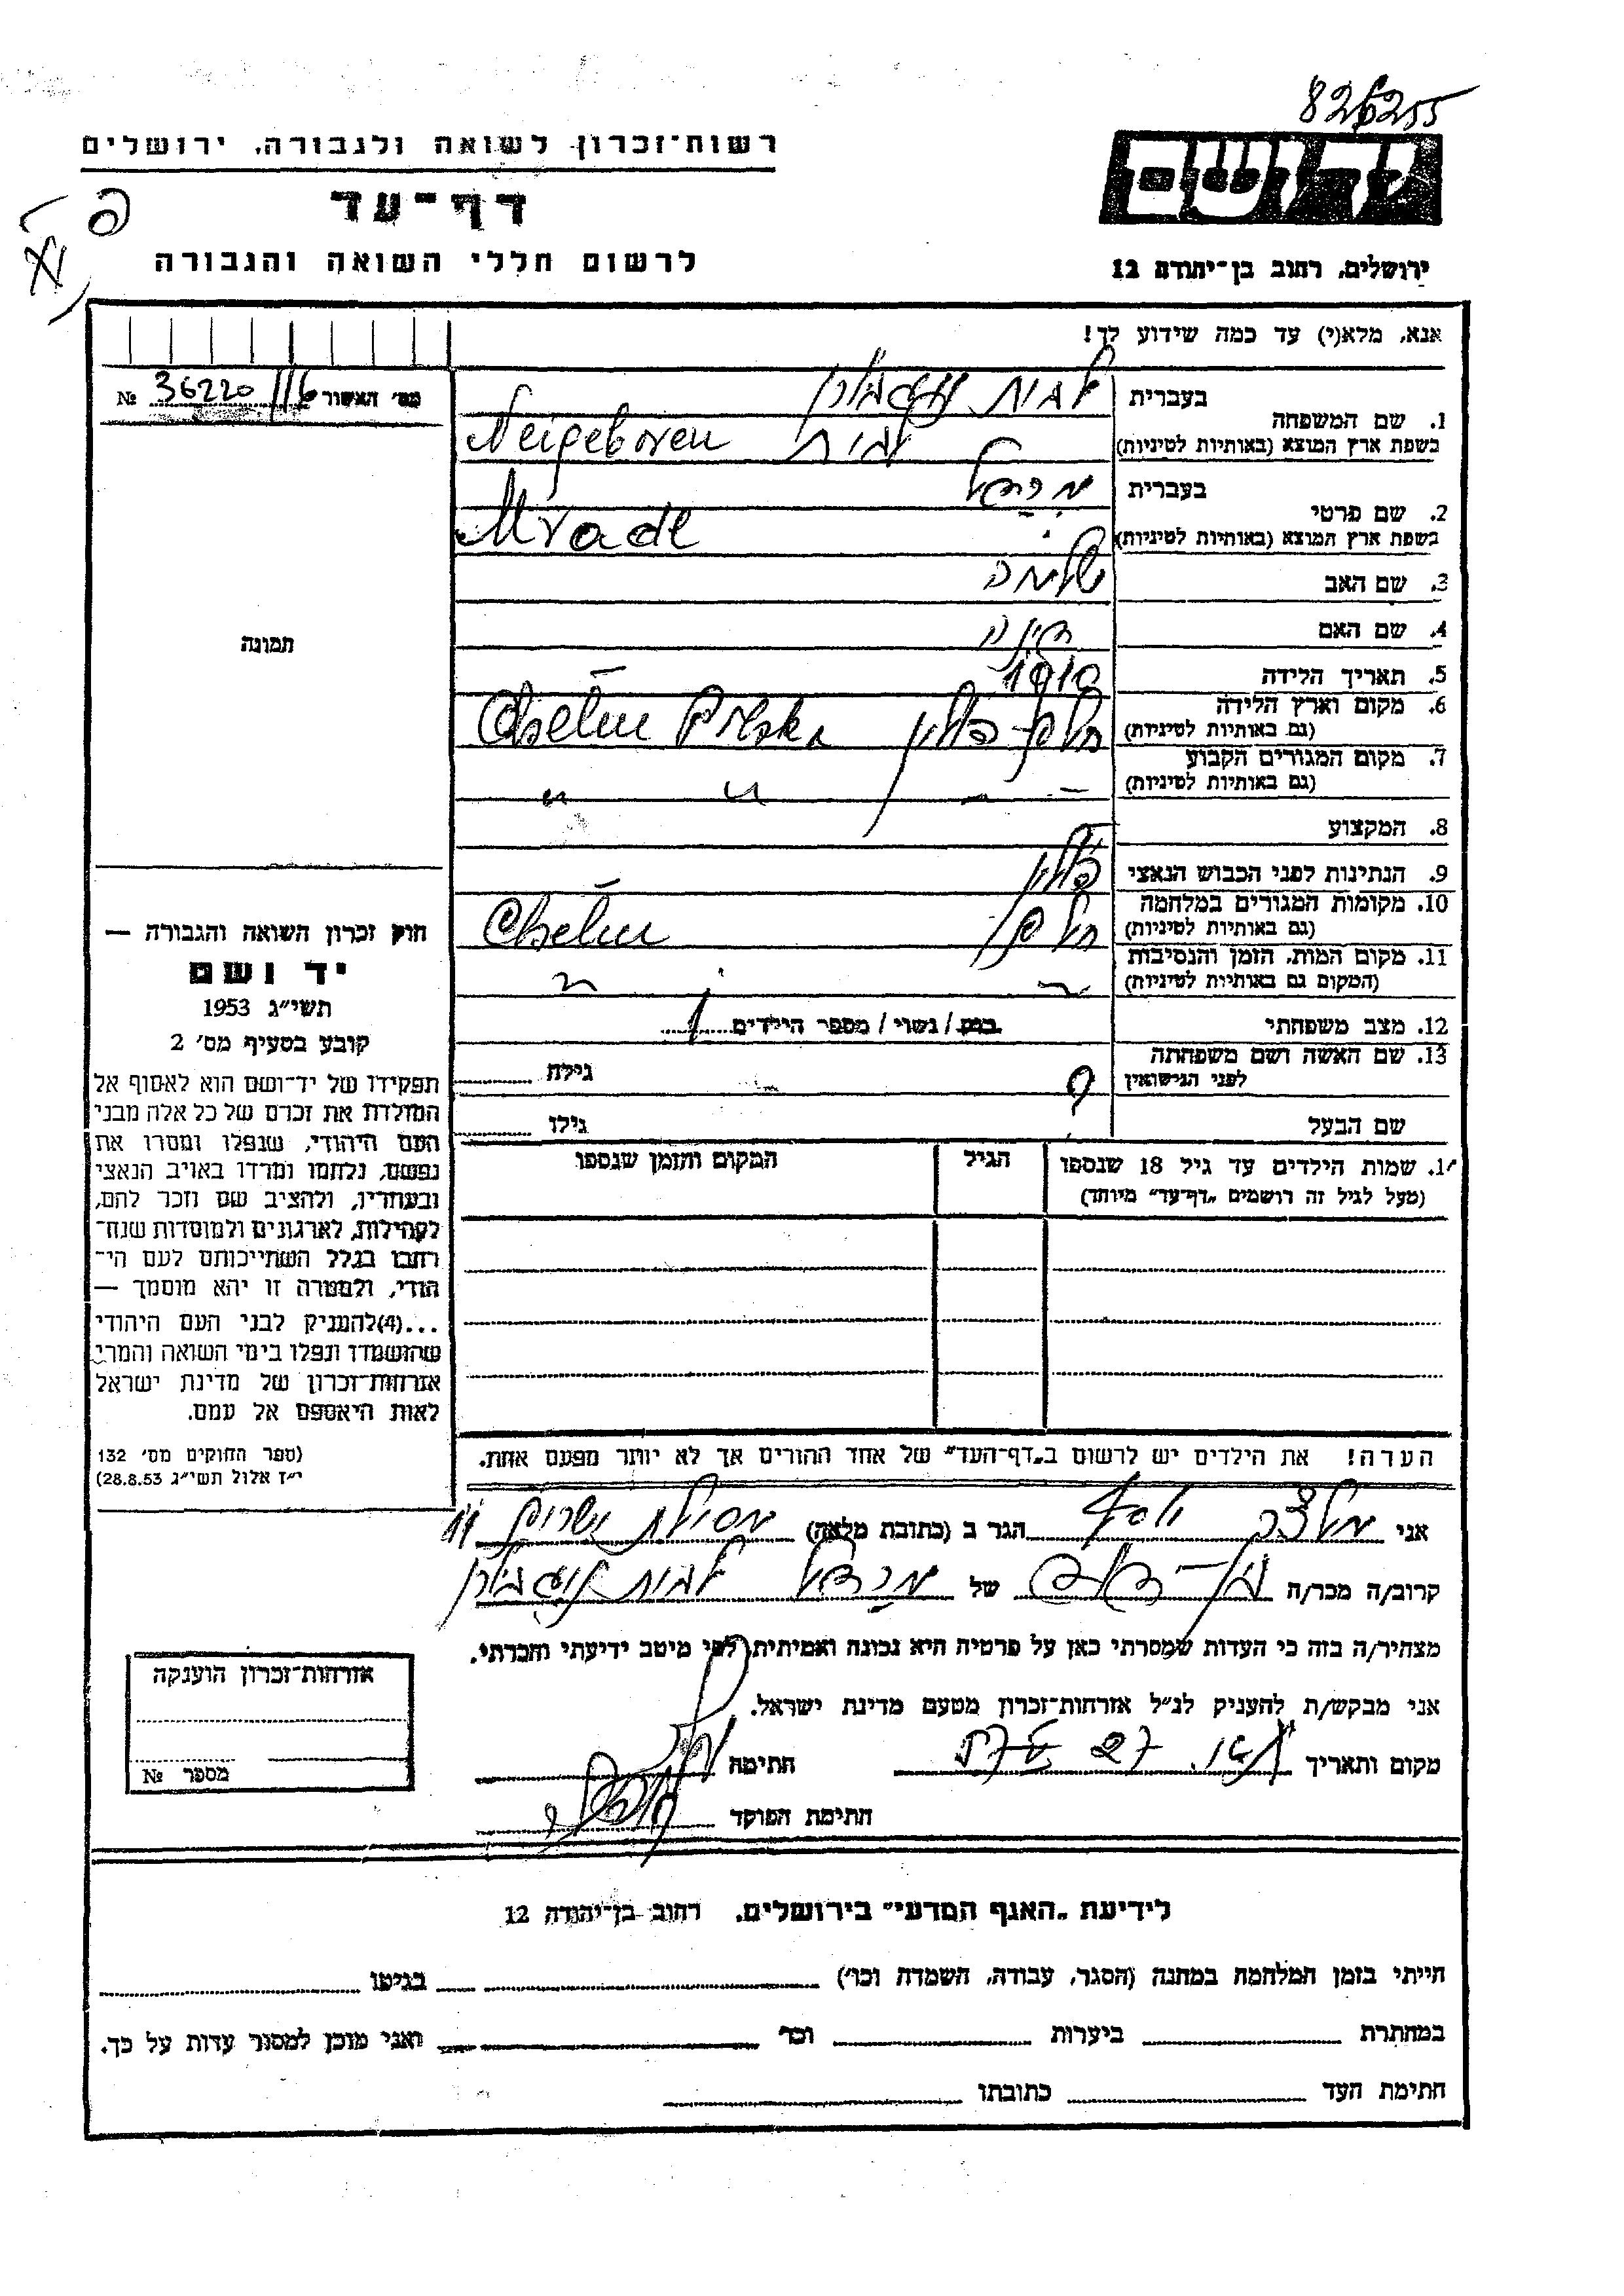 826255
רשות־זכרון לשואה ולגבורה, ירושלים
יד ושם
דף־עד
לרשום חללי השואה והגבורה
ירושלים, רחוב בן־יהודה 12
אנא, מלא(י) עד כמה שידוע לך!
מס׳ האשור 116 36220 №
1. שם המשפחה
בעברית לבית
בשפת ארץ המוצא (באותיות לטיניות) לבית Neigeboren
2. שם פרטי
בעברית
בשפת ארץ המוצא (באותיות לטיניות)
3. שם האב שלמה
4. שם האם
5. תאריך הלידה 1910
6. מקום וארץ הלידה
(גם באותיות לטיניות) חלם פולין Chelm Polska
7. מקום המגורים הקבוע
(גם באותיות לטיניות) — " — " "
8. המקצוע
9. הנתינות לפני הכבוש הנאצי פולין
10. מקומות המגורים במלחמה
(גם באותיות לטיניות) חלם Chelm
11. מקום המות, הזמן והנסיבות
(המקום גם באותיות לטיניות) " "
12. מצב משפחתי רווק / נשוי / מספר הילדים 1
13. שם האשה ושם משפחתה
לפני הנישואין ? גילה
שם הבעל גילו
תמונה
חוק זכרון השואה והגבורה —
יד ושם
תשי״ג 1953
קובע בסעיף מס׳ 2
תפקידו של יד־ושם הוא לאסוף אל
המולדת את זכרם של כל אלה מבני
העם היהודי, שנפלו ומסרו את
נפשם, נלחמו ומרדו באויב הנאצי
ובעוזריו, ולהציב שם וזכר להם,
לקהילות, לארגונים ולמוסדות שנח־
רבו בגלל השתייכותם לעם הי־
הודי, ולמטרה זו יהא מוסמך —
...(4) להעניק לבני העם היהודי
שהושמדו ונפלו בימי השואה והמרי
אזרחות־זכרון של מדינת ישראל
לאות היאספם אל עמם.
(ספר החוקים מס׳ 132
י״ז אלול תשי״ג 28.8.53)
שמות הילדים עד גיל 18 שנספו
(מעל לגיל זה רושמים „דף־עד״ מיוחד)
הגיל
המקום והזמן שנספו
הערה! את הילדים יש לרשום ב„דף־העד״ של אחד ההורים אך לא יותר מפעם אחת.
אני יוסף הגר ב (כתובת מלאה) מסילת ישרים 11
קרוב/ה מכר/ה בן־דוד של לבית
מצהיר/ה בזה כי העדות שמסרתי כאן על פרטיה היא נכונה ואמיתית, לפי מיטב ידיעתי והכרתי.
אני מבקש/ת להעניק לנ״ל אזרחות־זכרון מטעם מדינת ישראל.
מקום ותאריך חתימה
חתימת הפוקד
אזרחות־זכרון הוענקה
מספר №
לידיעת „האגף המדעי״ בירושלים, רחוב בן־יהודה 12
הייתי בזמן המלחמה במחנה (הסגר, עבודה, השמדה וכו׳) בגיטו
במחתרת ביערות וכו׳ ואני מוכן למסור עדות על כך.
חתימת העד כתובתו